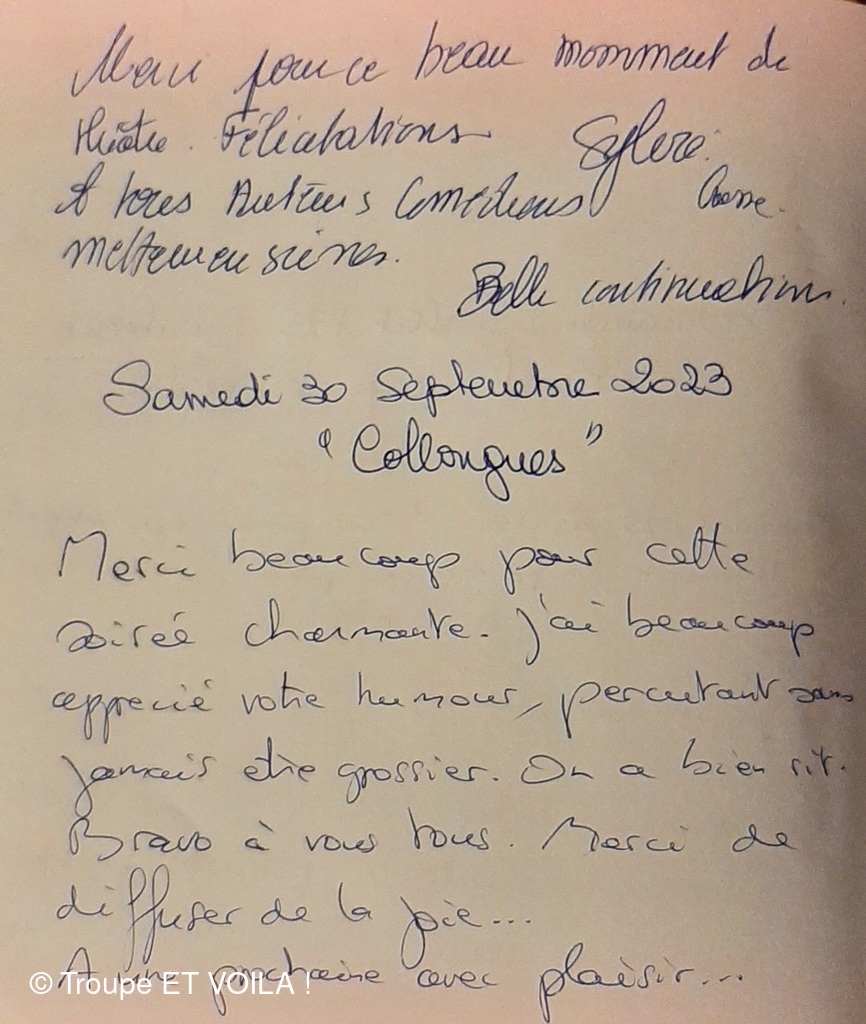 Merci pour ce beau momment de
théâtre. Félicitations
A tous Auteurs Comédiens
metteur en scènes.
Belle continuation.
Samedi 30 Septembre 2023
"Collongues"
Merci beaucoup pour cette
soirée charmante. J'ai beaucoup
apprecié votre humour, percutant sans
jamais etre grossier. On a bien rit.
Bravo à vous tous. Merci de
diffuser de la joie...
A une prochaine avec plaisir...
© Troupe ET VOILA !